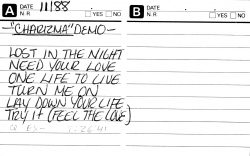 A DATE 11/88 YES NO
N.R.
B DATE YES NO
N.R.
-"CHARIZMA" DEMO-
LOST IN THE NIGHT
NEED YOUR LOVE
ONE LIFE TO LIVE
TURN ME ON
LAY DOWN YOUR LIFE
TRY IT (FEEL THE LOVE)